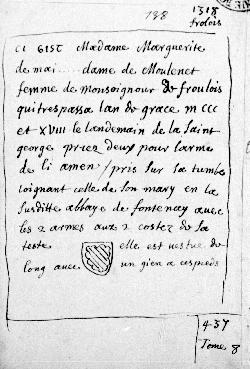 138
1318
frolois
CI GIST Madame Marguerite
de mai..... dame de Moulenet
femme de monseignour de froulois
qui trespassa lan de grace m ccc
et XVIII le landemain de la saint
george priez deux pour larme
de li amen / pris sur la tumbe
joignant celle de son mary en la
susditte abbaye de fontenay avec
les 2 armes aux 2 costez de sa
teste elle est vestue de
long avec un gien a ces pieds
437
Tome 8